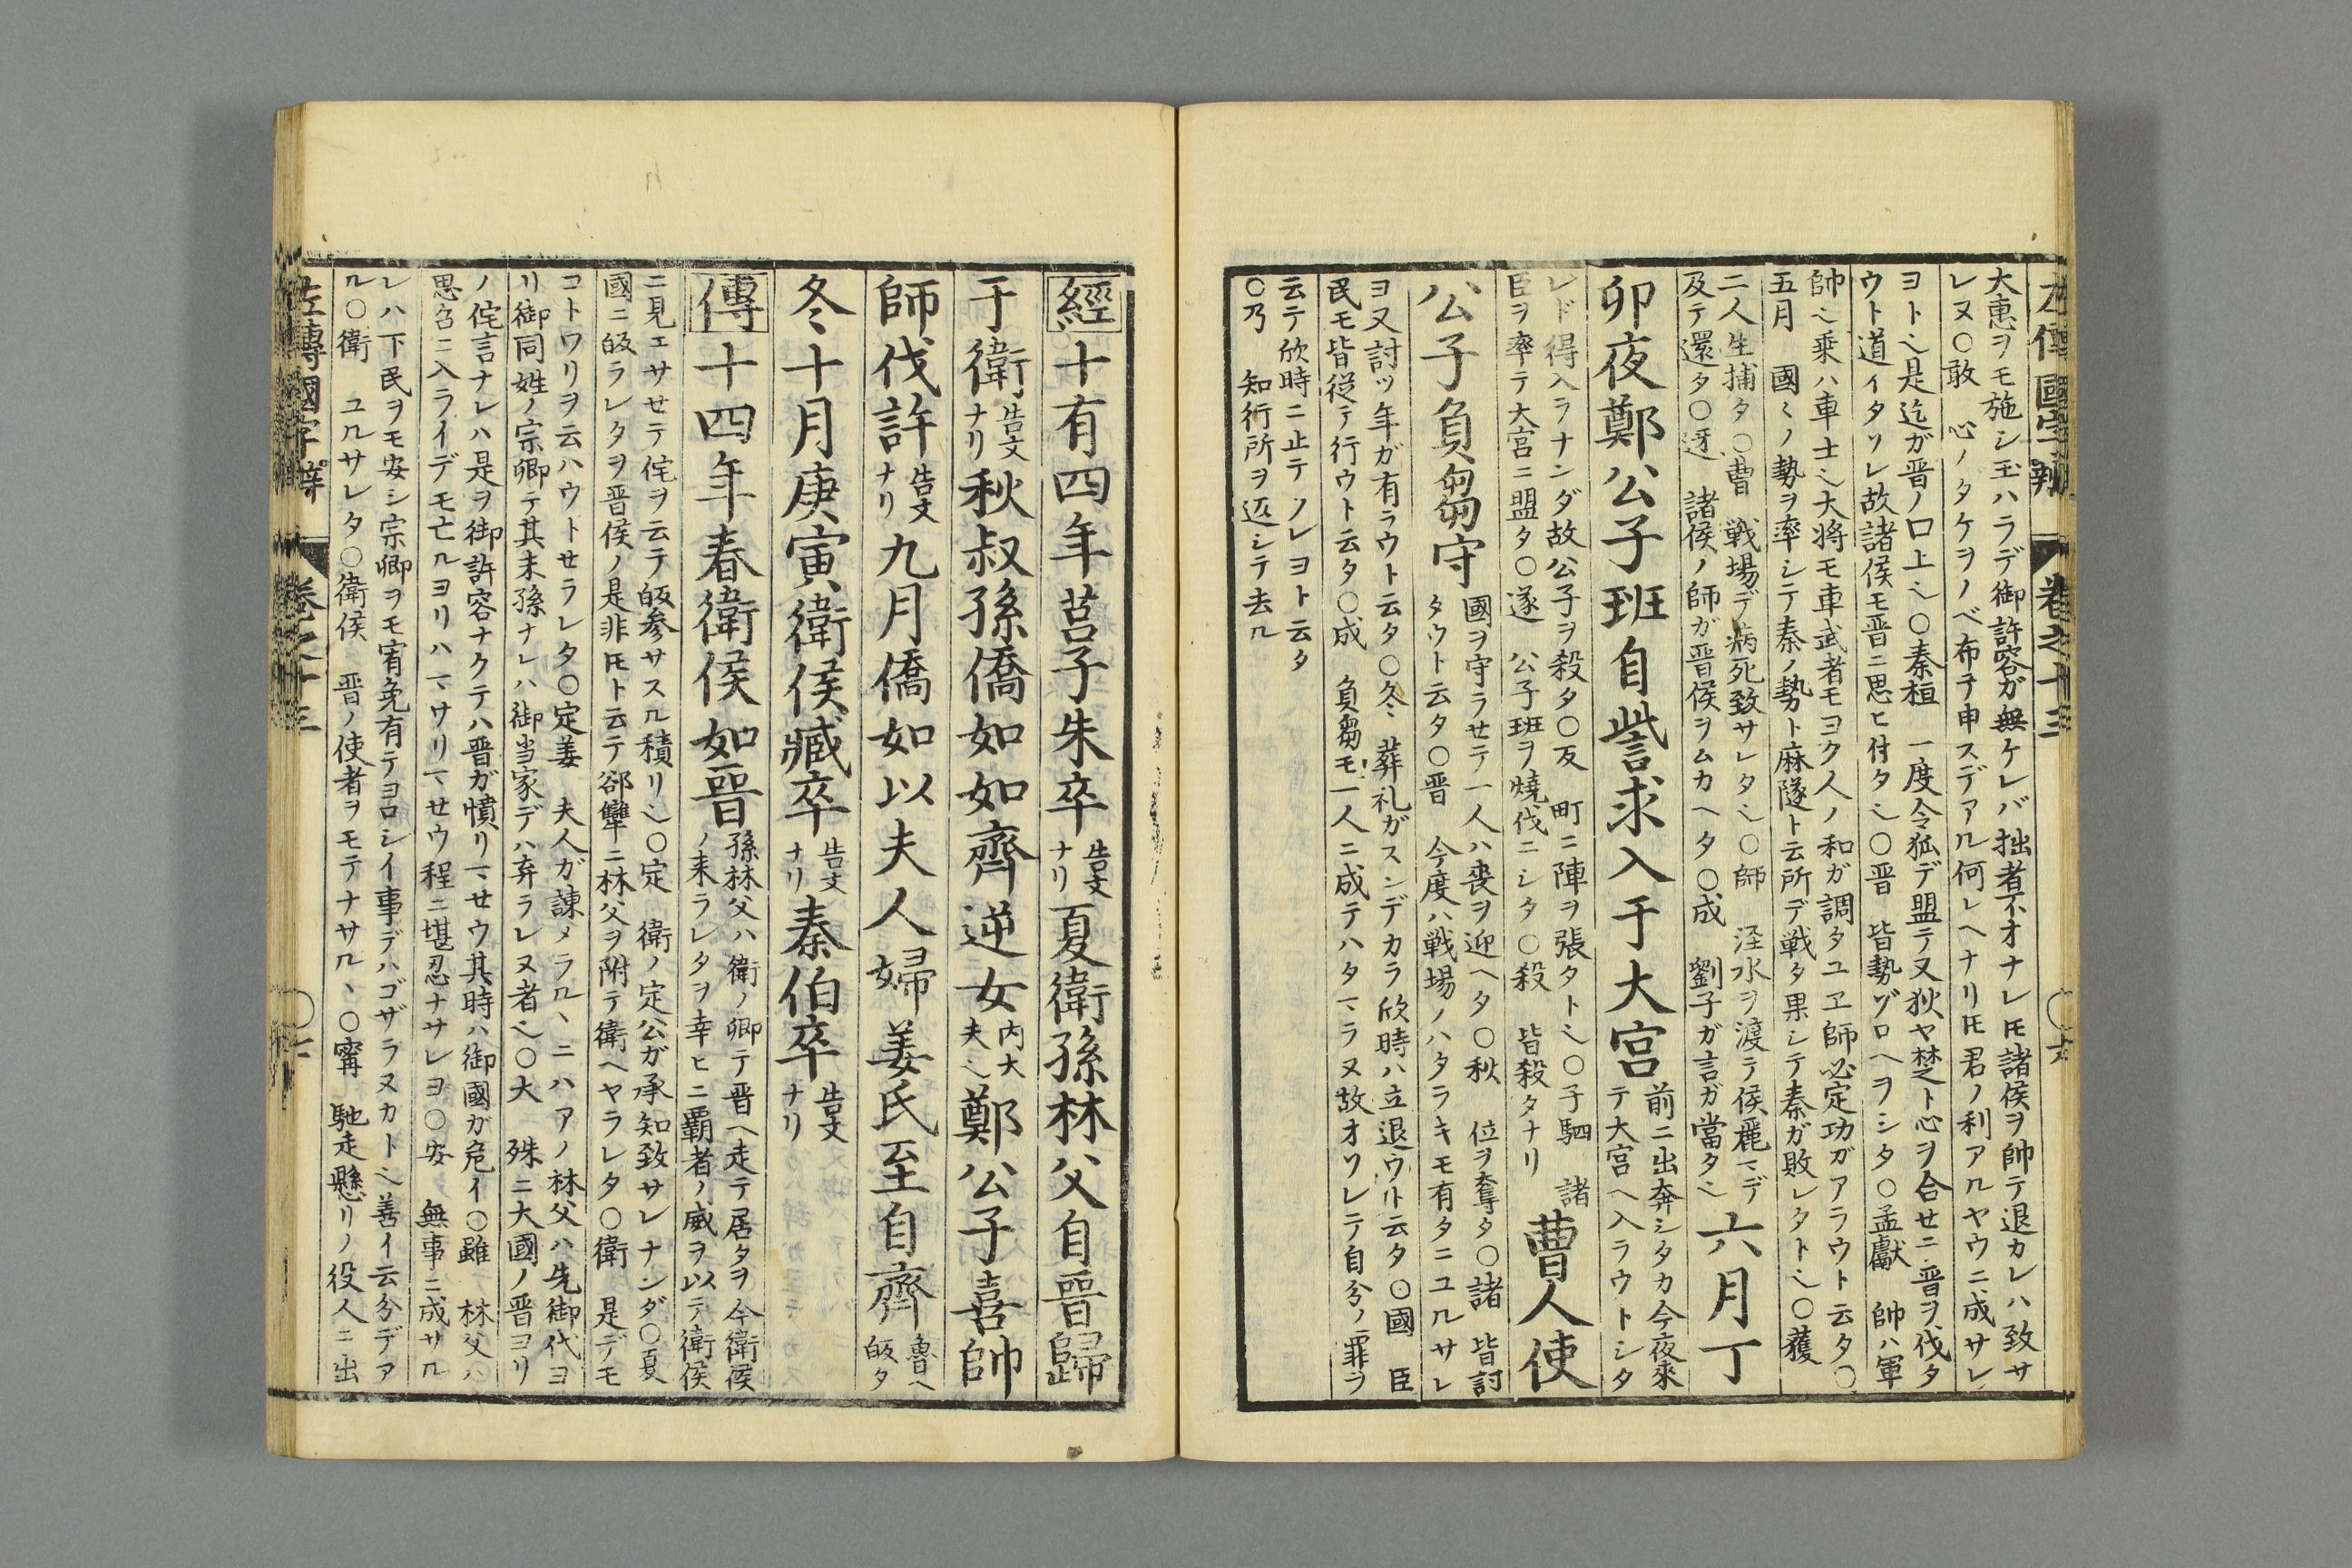 左傳國字辯 卷之十三 〇六
大惠ヲモ施シ玉ハラデ御許容ガ無ケレバ拙者不オナレ𪜈諸侯ヲ帥テ退カレハ致サ
レヌ〇敢 心ノタケヲノベ布ヲ申スデアル何レヘナリ𪜈君ノ利アルヤウニ成サレ
ヨト也是迄ガ晋ノ口上也〇秦桓 一度令狐デ盟テ又狄ヤ楚ト心ヲ合セニ晋ヲ伐タ
ウト道イタソレ故諸侯モ晋ニ思ヒ付タ也〇晋 皆勢ゾロヘヲシタ〇孟獻 帥ハ軍
帥也乗ハ車士也大将モ車武者モヨク人ノ和ガ調タユヱ師必定功ガアラウト云タ〇
五月 國〻ノ勢ヲ率シテ秦ノ勢ト麻隧ト云所デ戦タ果シテ秦ガ敗レタト也〇獲
二人生捕タ〇曹 戦場デ病死致サレタ也〇師 涇水ヲ渡テ侯麗マデ
及テ還タ〇迓 諸侯ノ師ガ晋侯ヲムカヘタ〇成 劉子ガ言ガ當タ也
六月丁
卯夜鄭公子班自訾求入于大宮
前ニ出奔シタカ今夜來
テ大宮ヘ入ラウトシタ
レド得入ラナンダ故公子ヲ殺タ〇反 町ニ陣ヲ張タト也〇子駟 諸
臣ヲ率テ大宮ニ盟タ〇遂 公子班ヲ燒伐ニシタ〇殺 皆殺タナリ
曹人使
公子負芻守
國ヲ守ラセテ一人ハ喪ヲ迎ヘタ〇秋 位ヲ奪タ〇諸 皆討
タウト云タ〇晋 今度ハ戦場ノハタラキモ有タニユルサレ
ヨ又討ツ年ガ有ラウト云タ〇冬 葬礼ガスンデカラ欣時ハ立退ウト云タ〇國 臣
民モ皆従テ行ウト云タ〇成 負芻モ一人ニ成テハタマラヌ故オソレテ自分ノ罪ヲ
云テ欣時ニ止テクレヨト云タ
〇乃 知行所ヲ返シテ去ル
經十有四年莒子朱卒
告文
ナリ
夏衛孫林父自晉歸
于衛
告文
ナリ
秋叔孫僑如如齊逆女
内大
夫也
鄭公子喜帥
師伐許
告文
ナリ
九月僑如以夫人婦姜氏至自齊
魯ヘ
皈タ
冬十月庚寅衛侯臧卒
告文
ナリ
秦伯卒
告文
ナリ
傳十四年春衛侯如晉
孫林父ハ衛ノ卿テ晋ヘ走テ居タヲ今衛侯
ノ来ラレタヲ幸ヒニ覇者ノ威ヲ以テ衛侯
ニ見エサセテ侘ヲ云テ皈參サスル積リ也〇定 衛ノ定公ガ承知致サレナンダ〇夏
國ニ皈ラレタヲ晋侯ノ是非𪜈ト云テ郤犨ニ林父ヲ附テ衛ヘヤラレタ〇衛 是デモ
コトワリヲ云ハウトセラレタ〇定姜 夫人ガ諌メラルヽニハアノ林父ハ先御代ヨ
リ御同姓ノ宗卿テ其末孫ナレハ御当家デハ弃ラレヌ者也〇大 殊ニ大國ノ晋ヨリ
ノ侘言ナレハ是ヲ御許容ナクテハ晋ガ憤リマセウ其時ハ御國ガ危イ〇雖 林父ハ
思召ニ入ライデモ亡ルヨリハマサリマセウ程ニ堪忍ナサレヨ〇安 無事ニ成サル
レハ下民ヲモ安シ宗卿ヲモ宥免有テヨロシイ事デハゴザラヌカト也善イ云分デア
ル〇衛 ユルサレタ〇衛侯 晋ノ使者ヲモテナサルヽ〇甯 馳走懸リノ役人ニ出
左傳國字辯 卷之十三 〇七